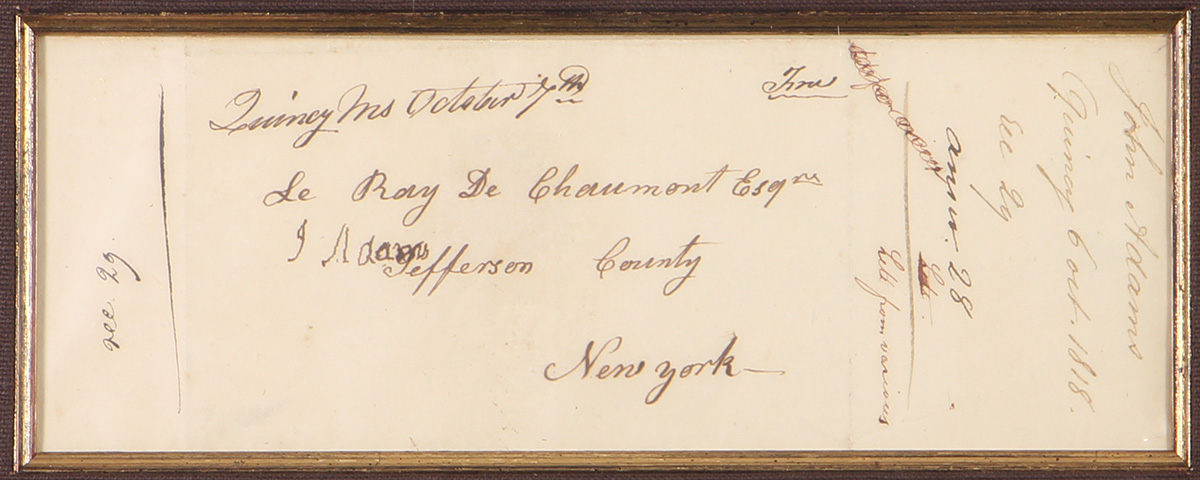 Quincy Ms October 7th
Free
Le Ray De Chaumont Esqre
J Adams
Jefferson County
New york
rec 29.
Let.
Lets from various
answ. 28
rec 29
Quincy 6 oct. 1818.
John Adams